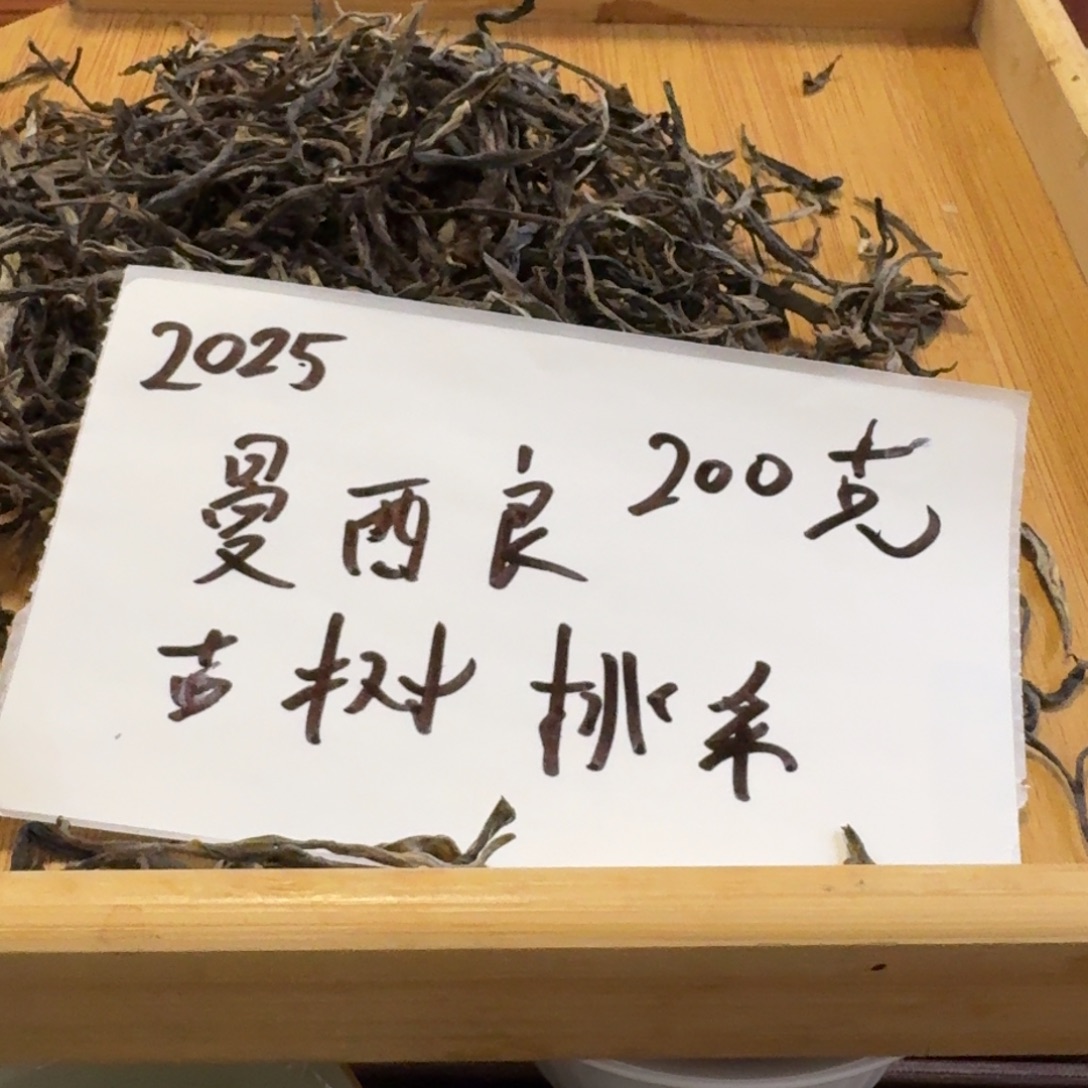 2025
曼酉良 200克
古树 挑采